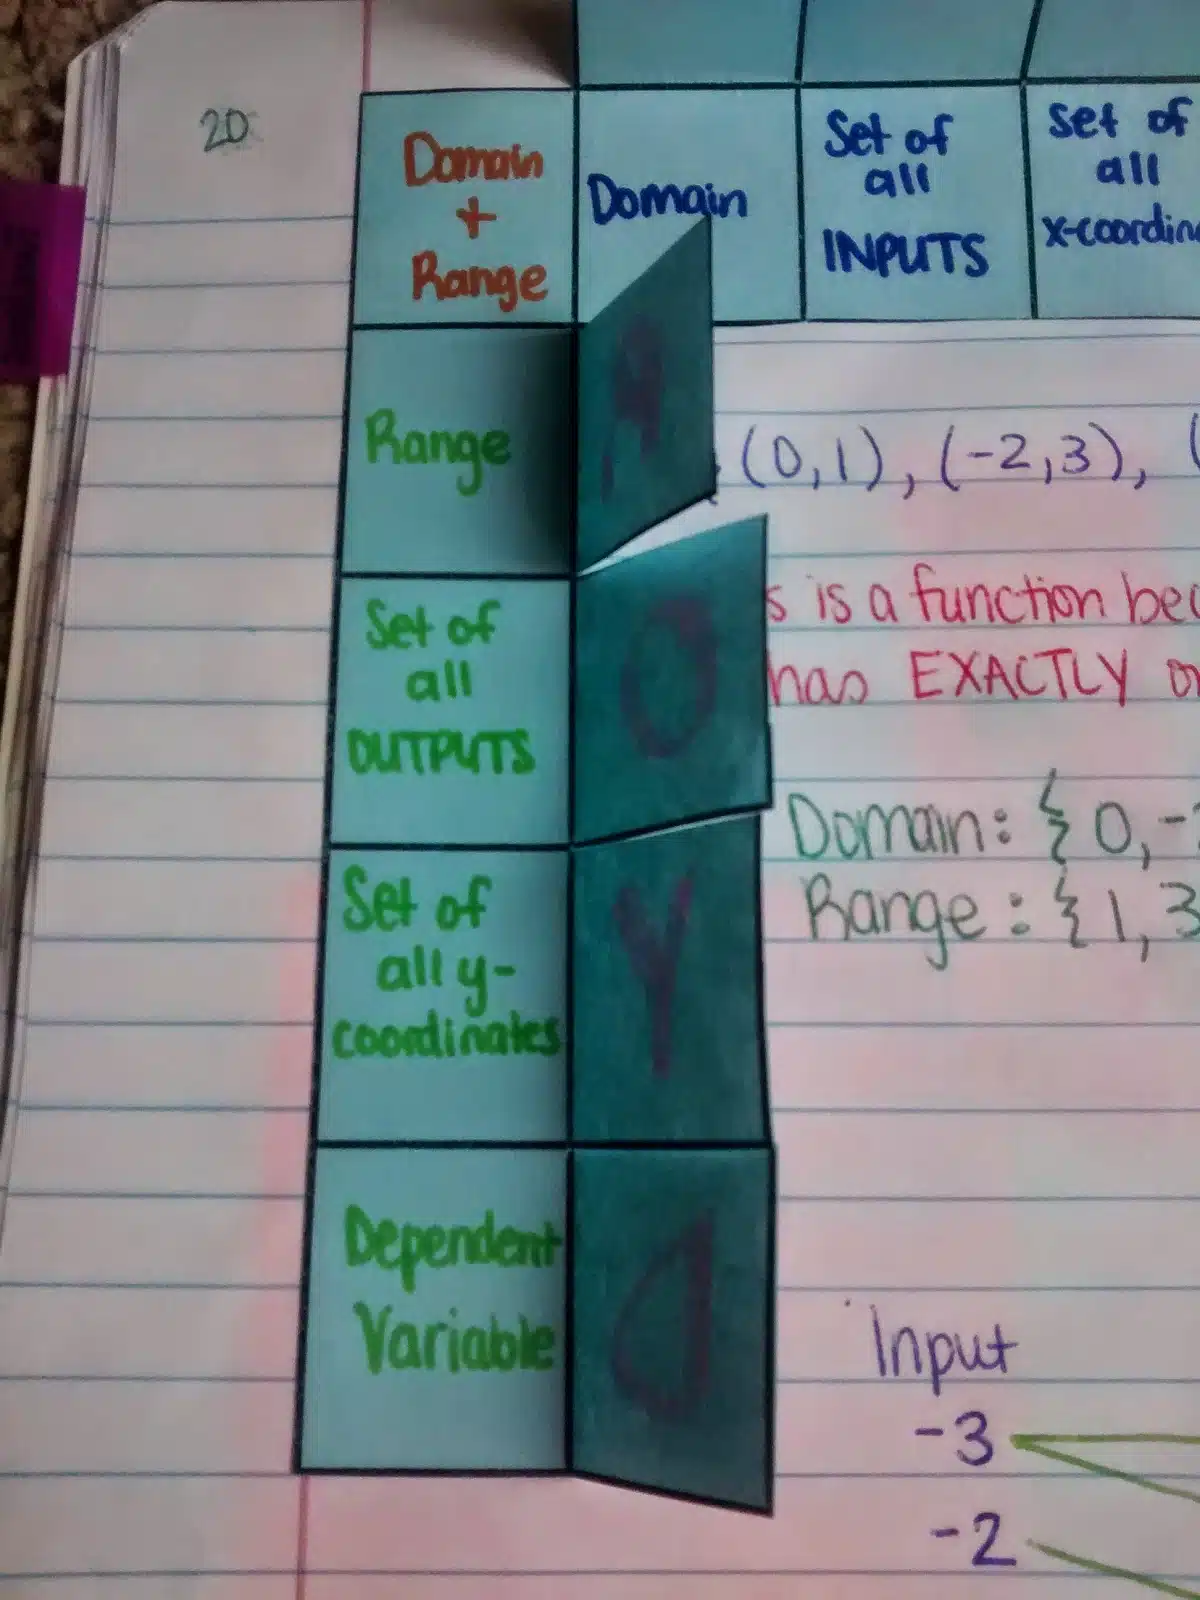 20
Domain
+
Range
Domain
Set of
all
INPUTS
Set of
all
Range
(0,1), (-2,3), (
Set of
all
OUTPUTS
s is a function bec
has EXACTLY
Domain: { 0, -
Range: { 1, 3
Set of
all y-
coordinates
Dependent
Variable
O
Y
Input
-3
-2